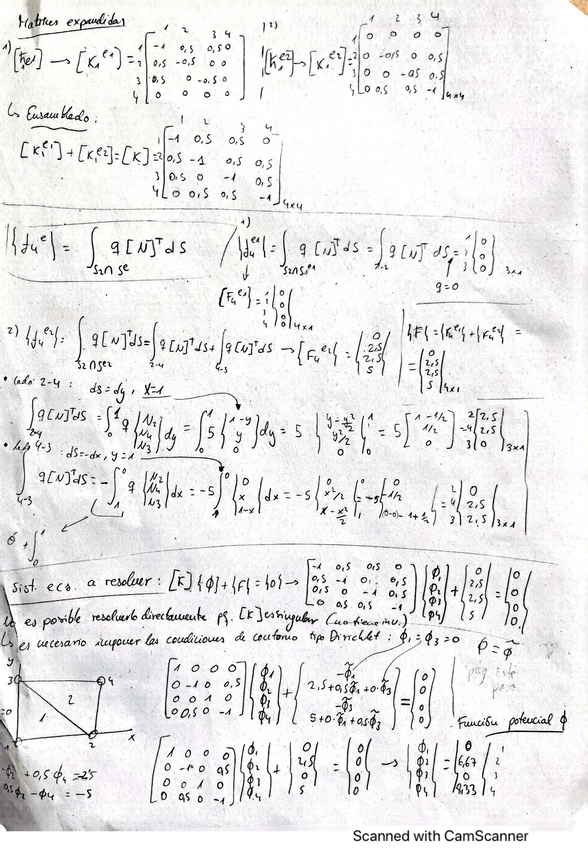 Matrices expandidas
1) [K₁ᵉ¹] → [K₁ᵉ¹] = [-1 0,5 0,5 0; 0,5 -0,5 0 0; 0,5 0 -0,5 0; 0 0 0 0]
2) [K₁ᵉ²] → [K₁ᵉ²] = [0 0 0 0; 0 -0,5 0 0,5; 0 0 -0,5 0,5; 0 0,5 0,5 -1] 4x4
↳ Ensamblado:
[K₁ᵉ¹] + [K₁ᵉ²] = [K] = [-1 0,5 0,5 0; 0,5 -1 0,5 0,5; 0,5 0 -1 0,5; 0 0,5 0,5 -1] 4x4
{f₄ᵉ} = ∫ q [N]ᵀ dS
S₂∩Sᵉ
1) {f₄ᵉ¹} = ∫ q [N]ᵀ dS = ∫ q [N]ᵀ dS = {0 0 0} 3x1
q=0
{F₄ᵉ¹} = {0 0 0 0} 4x1
2) {f₄ᵉ²} = ∫ q [N]ᵀ dS = ∫ q [N]ᵀ dS + ∫ q [N]ᵀ dS → {F₄ᵉ²} = {0 2,5 2,5 5}
S₂∩Sᵉ² 2-4 4-3
{F} = {F₄ᵉ¹} + {F₄ᵉ²} =
= {0 2,5 2,5 5} 4x1
• lado 2-4: ds=dy, x=1
∫ q [N]ᵀ dS = ∫₀¹ q {N₂ N₄ N₃} dy = ∫₀¹ 5 {1-y y 0} dy = 5 {y-y²/2 y²/2 0}₀¹ = 5 [1-1/2 1/2 0] = {2,5 2,5 0} 3x1
• lado 4-3: ds=-dx, y=1
∫ q [N]ᵀ dS = -∫₁⁰ q {N₂ N₄ N₃} dx = -5 ∫₁⁰ {0 x 1-x} dx = -5 {0 x²/2 x-x²/2} = -5 {0 -1/2 (0-0)-1+1/2} = {0 2,5 2,5} 3x1
ó +∫₀¹
Sist. ecs. a resolver: [K]{ϕ}+{F}={0} → [-1 0,5 0,5 0; 0,5 -1 0 0,5; 0,5 0 -1 0,5; 0 0,5 0,5 -1] {ϕ₁ ϕ₂ ϕ₃ ϕ₄} + {0 2,5 2,5 5} = {0 0 0 0}
es posible resolverlo directamente pq. [K] es singular (no tiene inv.)
↳ es necesario imponer las condiciones de contorno tipo Dirichlet: ϕ₁ = ϕ₃ = 0
ϕ = ϕ̃
y
3 4
2
1
1 2 x
[1 0 0 0; 0 -1 0 0,5; 0 0 1 0; 0 0,5 0 -1] {ϕ₁ ϕ₂ ϕ₃ ϕ₄} + {-ϕ̃₁ 2,5+0,5ϕ̃₁+0·ϕ̃₃ -ϕ̃₃ 5+0·ϕ̃₁+0,5ϕ̃₃} = {0 0 0 0}
Función potencial ϕ
[1 0 0 0; 0 -1 0 0,5; 0 0 1 0; 0 0,5 0 -1] {ϕ₁ ϕ₂ ϕ₃ ϕ₄} + {0 2,5 0 5} = {0 0 0 0} → {ϕ₁ ϕ₂ ϕ₃ ϕ₄} = {0 6,67 0 8,33} 1 2 3 4
-ϕ₂ + 0,5 ϕ₄ = -2,5
0,5ϕ₂ - ϕ₄ = -5
Scanned with CamScanner